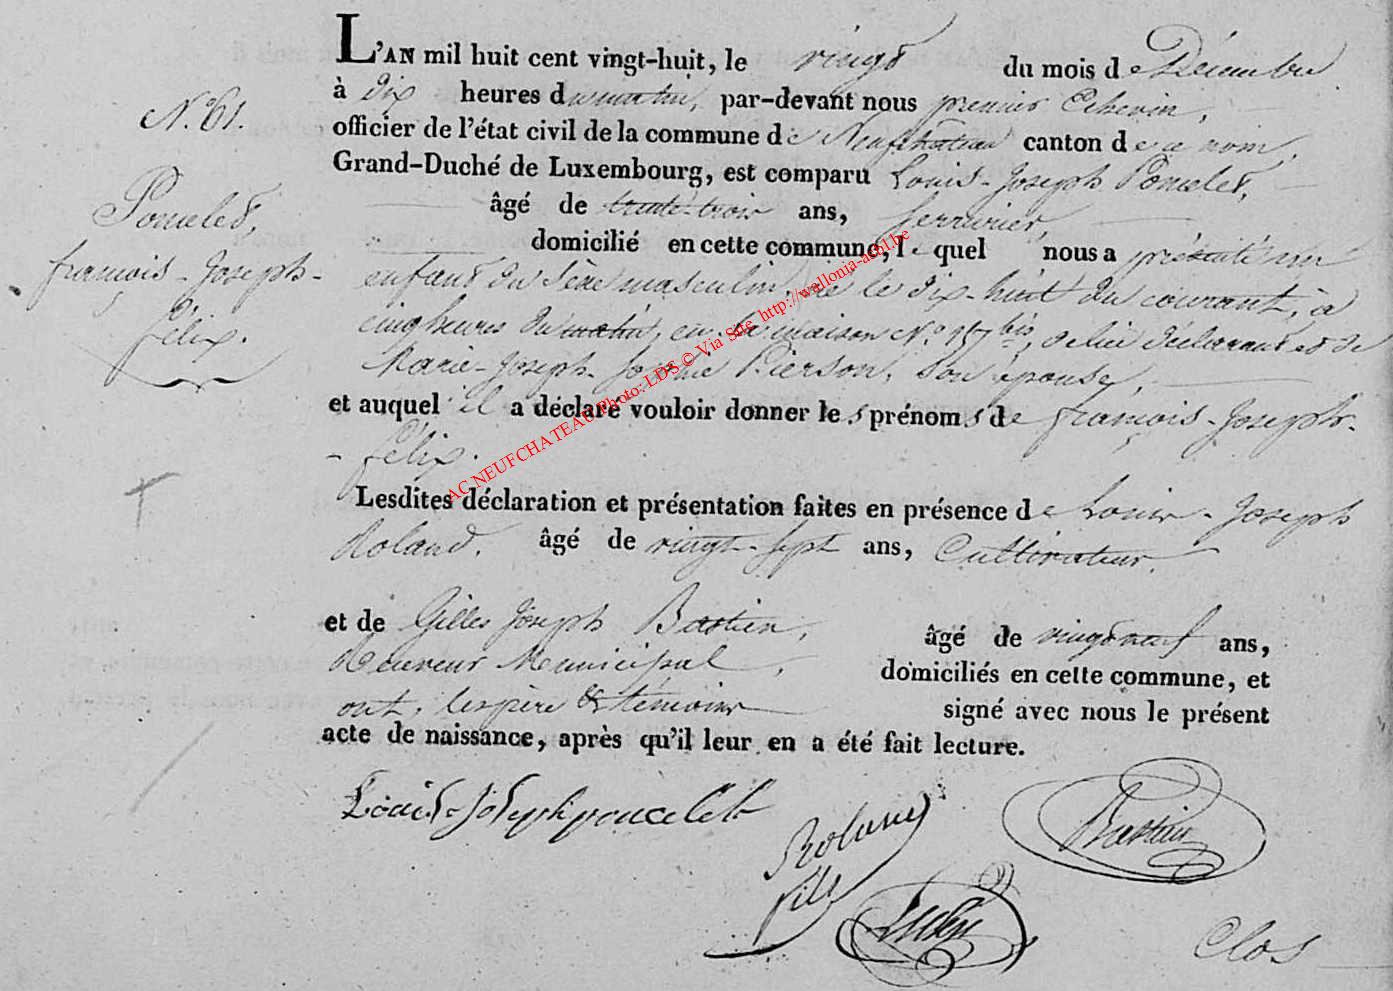 L'AN mil huit cent vingt-huit, le vingt du mois de Décembre
N.º 61.
à dix heures du matin, par-devant nous premier Echevin,
officier de l'état civil de la commune de Neufchateau canton de ce nom,
Grand-Duché de Luxembourg, est comparu Louis-Joseph Poncelet,
Poncelet,
François-Joseph-
Félix.
âgé de trente-trois ans, serrurier,
domicilié en cette commune, lequel nous a présenté un
enfant du sèxe masculin, né le dix-huit du courant, à
cinq heures du matin, en la maison N.º 157 bis, de lui déclarant et de
Marie-Joseph-Sophie Pierson, son épouse,
et auquel il a déclaré vouloir donner les prénoms de François-Joseph-
-Félix.
Lesdites déclaration et présentation faites en présence de Louis-Joseph
Roland, âgé de vingt-sept ans, Cultivateur,
et de Gilles Joseph Bastien, âgé de vingt neuf ans,
Receveur Municipal, domiciliés en cette commune, et
ont, les père & témoins signé avec nous le présent
acte de naissance, après qu'il leur en a été fait lecture.
Louis-Joseph poncelet
Roland
fils
Bastien
Clos
AC NEUFCHATEAU Photo: LDS © Via Site http://wallonia-asbl.be